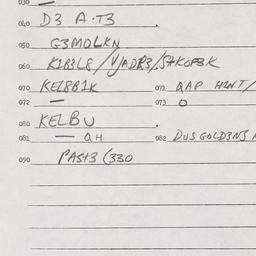 030 —
040 D3 A·T3
050 G3MOLKN
060 K1B3L8/VJADR3/S#KOP3K
070 KEL8B1K 071 QAP H2NT/
072 — 073 O
080 KELBU
081 — QH 082 DUSGOLD3N3
090 PAST3 (330